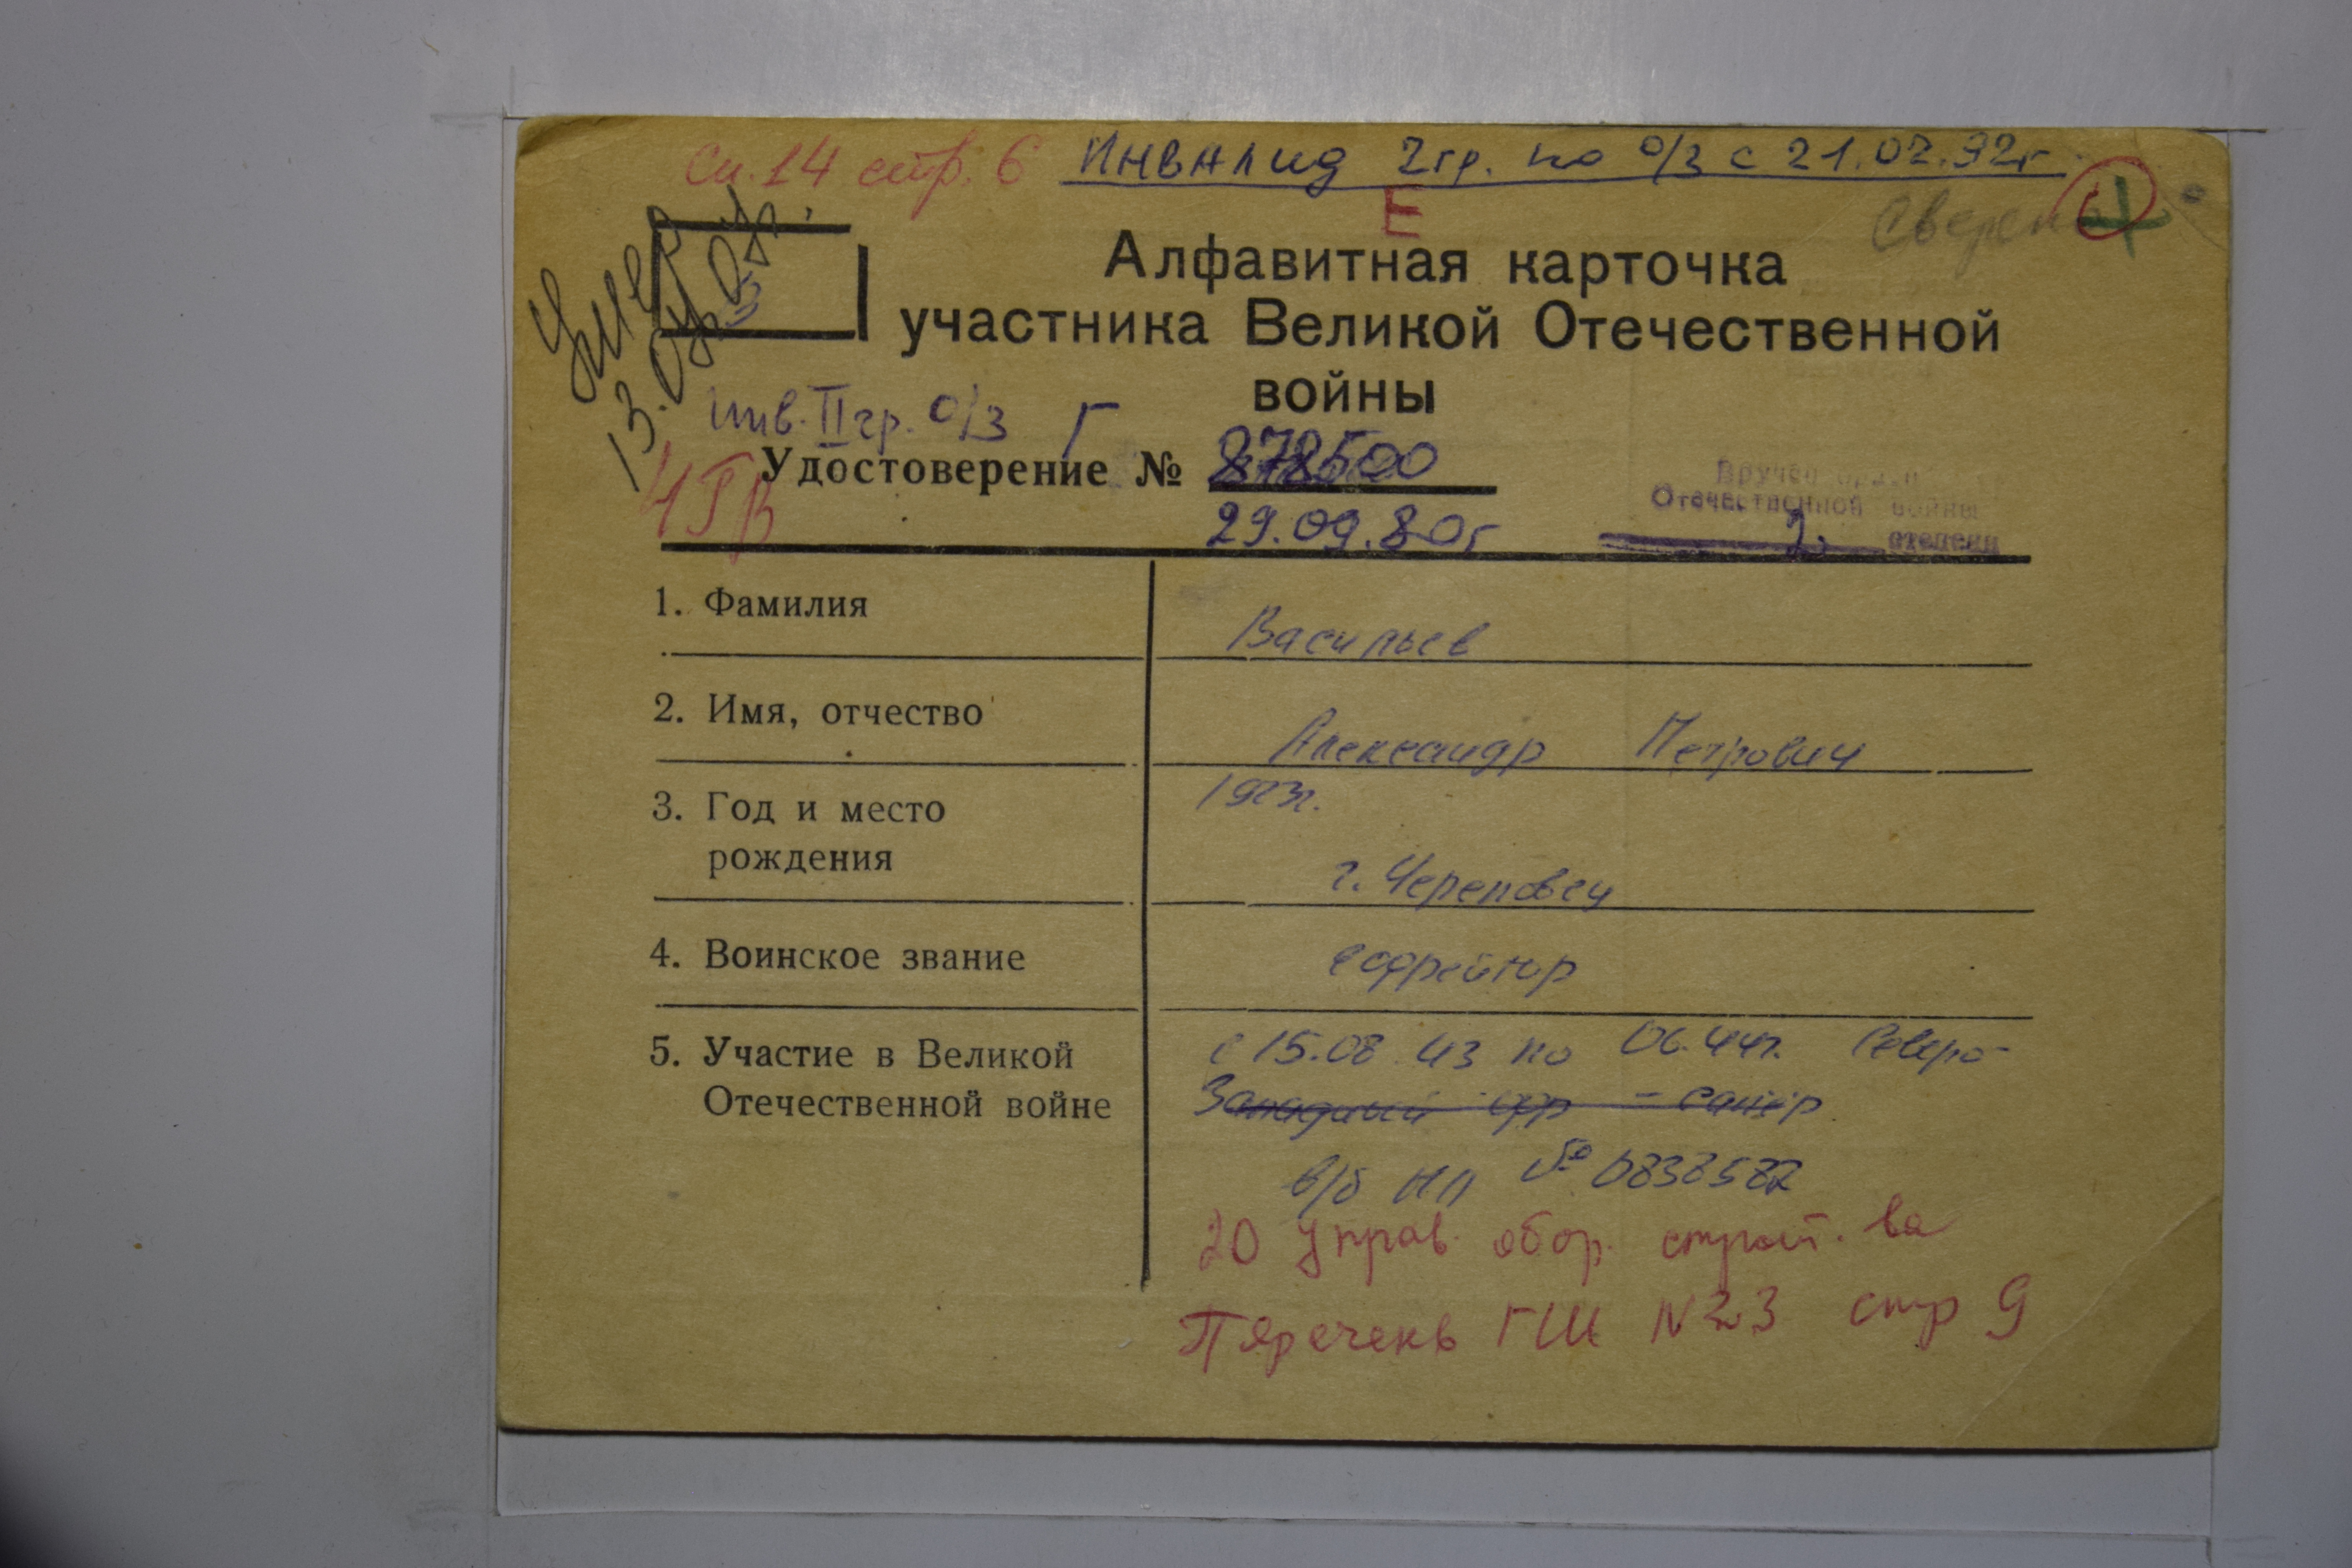 Сп. 14 стр. 6 Инвалид 2 гр. по о/з с 21.02.92г.
Е
Сверено
Умер
13.04.
3
Алфавитная карточка
участника Великой Отечественной
войны
инв. II гр. о/з Г
Удостоверение № 878500
29.09.80г
Вручен орден
Отечественной войны
2. степени
1. Фамилия
Васильев
2. Имя, отчество
Александр Петрович
3. Год и место
рождения
1923г.
г. Череповец
4. Воинское звание
ефрейтор
5. Участие в Великой
Отечественной войне
с 15.08.43 по 06.44г. Северо-
Западный фр - сапёр
в/б НП № 0838582
20 управ. обор. строит. ва
Перечень ГШ N 23 стр 9